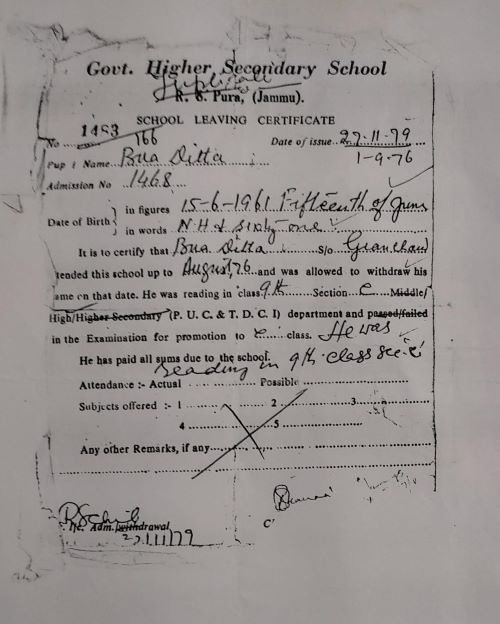 Govt. Higher Secondary School
Duplicate
R. S. Pura, (Jammu).
SCHOOL LEAVING CERTIFICATE
No 1483 Date of issue 27-11-79
166 1-9-76
Pupil Name Bua Ditta
Admission No 1468
Date of Birth in figures 15-6-1961 Fifteenth of June
in words N.H & Sixty one
It is to certify that Bua Ditta S/o Gianchand
tended this school up to August, 76 and was allowed to withdraw his
ame on that date. He was reading in class 9th Section C Middle/
High/Higher Secondary (P. U. C. & T. D. C. I) department and passed/failed
in the Examination for promotion to class. He was
He has paid all sums due to the school.
reading in 9th class sec 'C'
Attendance :- Actual Possible
Subjects offered :- 1 2 3
4 5
Any other Remarks, if any
I/c. Adm. (withdrawal
27/11/79